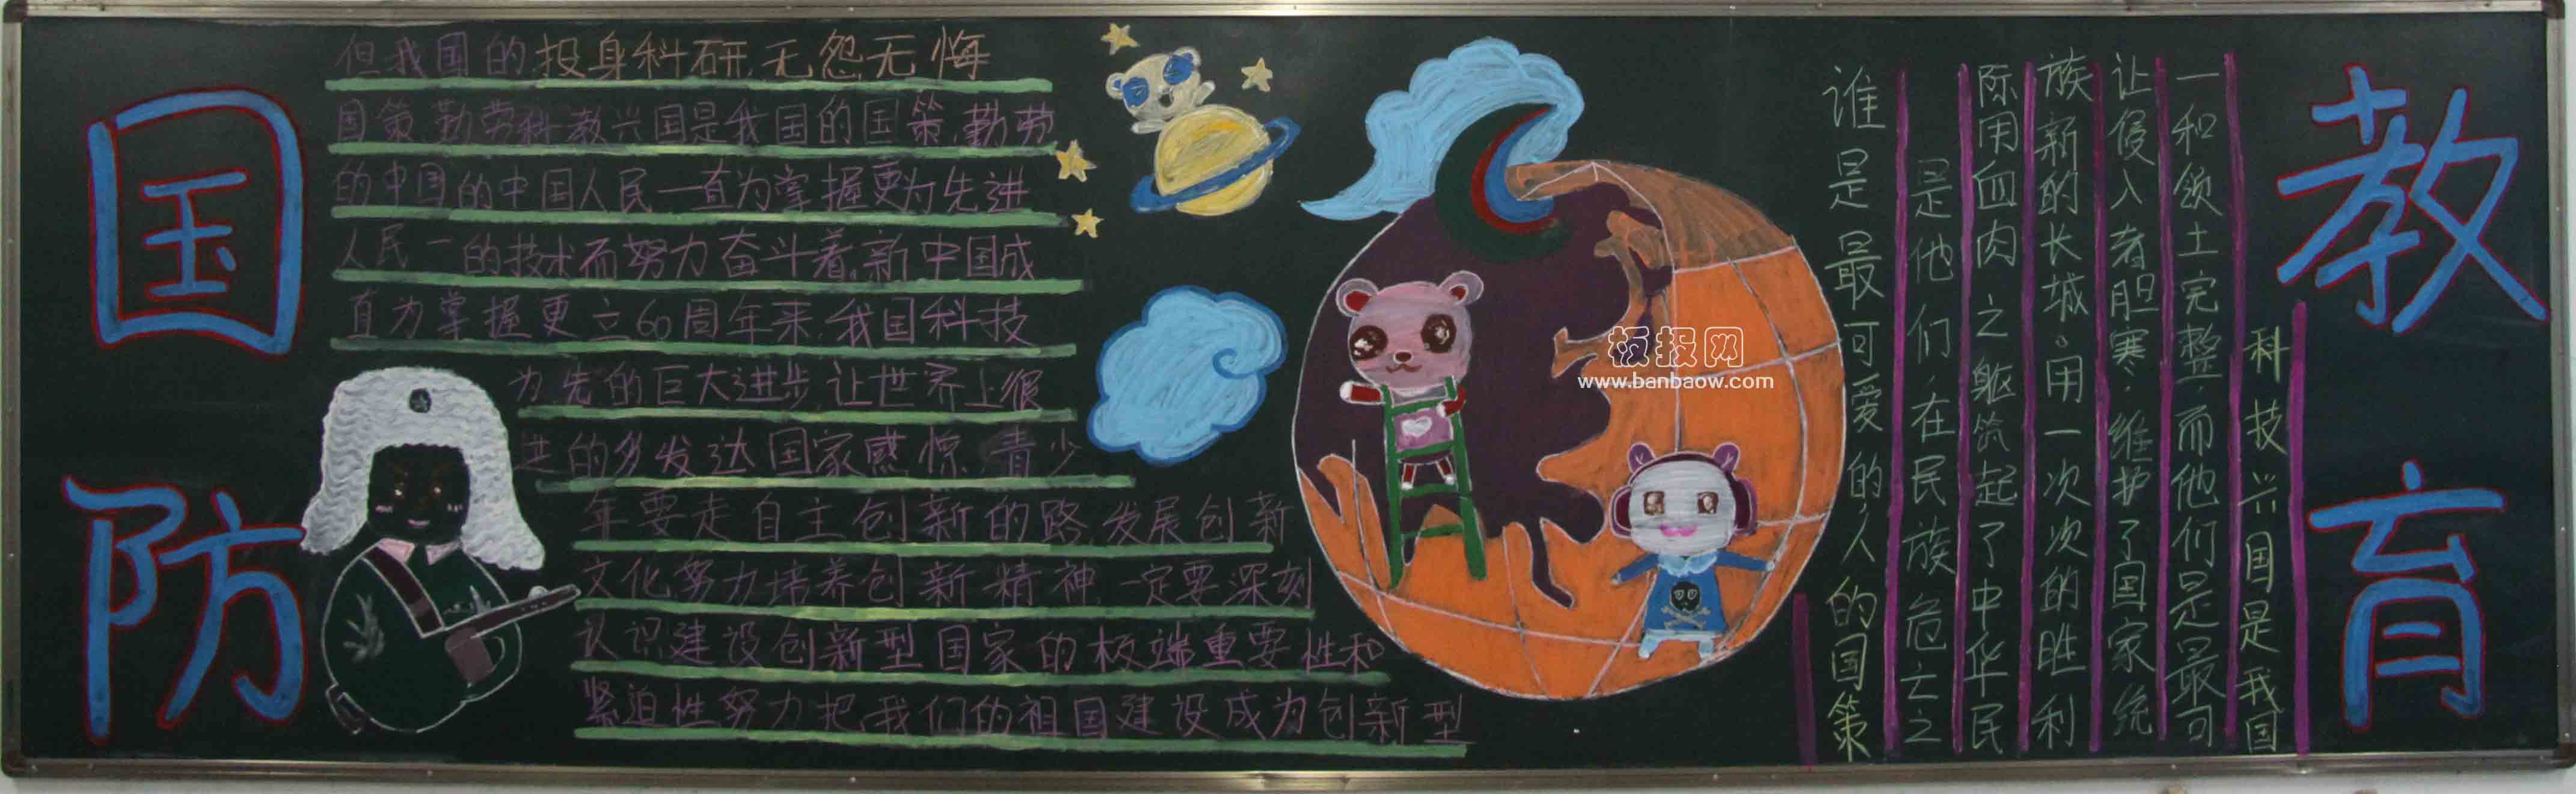 国防
教育
但我国的投身科研,无怨无悔
国策,勤劳科教兴国是我国的国策,勤劳
的中国的中国人民一直为掌握更为先进
人民一的技术而努力奋斗着,新中国成
直为掌握更立60周年来,我国科技
为先的巨大进步让世界上很
进的多发达国家感惊,青少
年要走自主创新的路,发展创新
文化,努力培养创新精神,一定要深刻
认识建设创新型国家的极端重要性和
紧迫性努力把我们的祖国建设成为创新型
板报网
www.banbaow.com
科技兴国是我国
一和领土完整,而他们是最可
让侵入者胆寒,维护了国家统
族新的长城。用一次次的胜利
际用血肉之躯筑起了中华民
是他们,在民族危亡之
谁是最可爱的人的国策